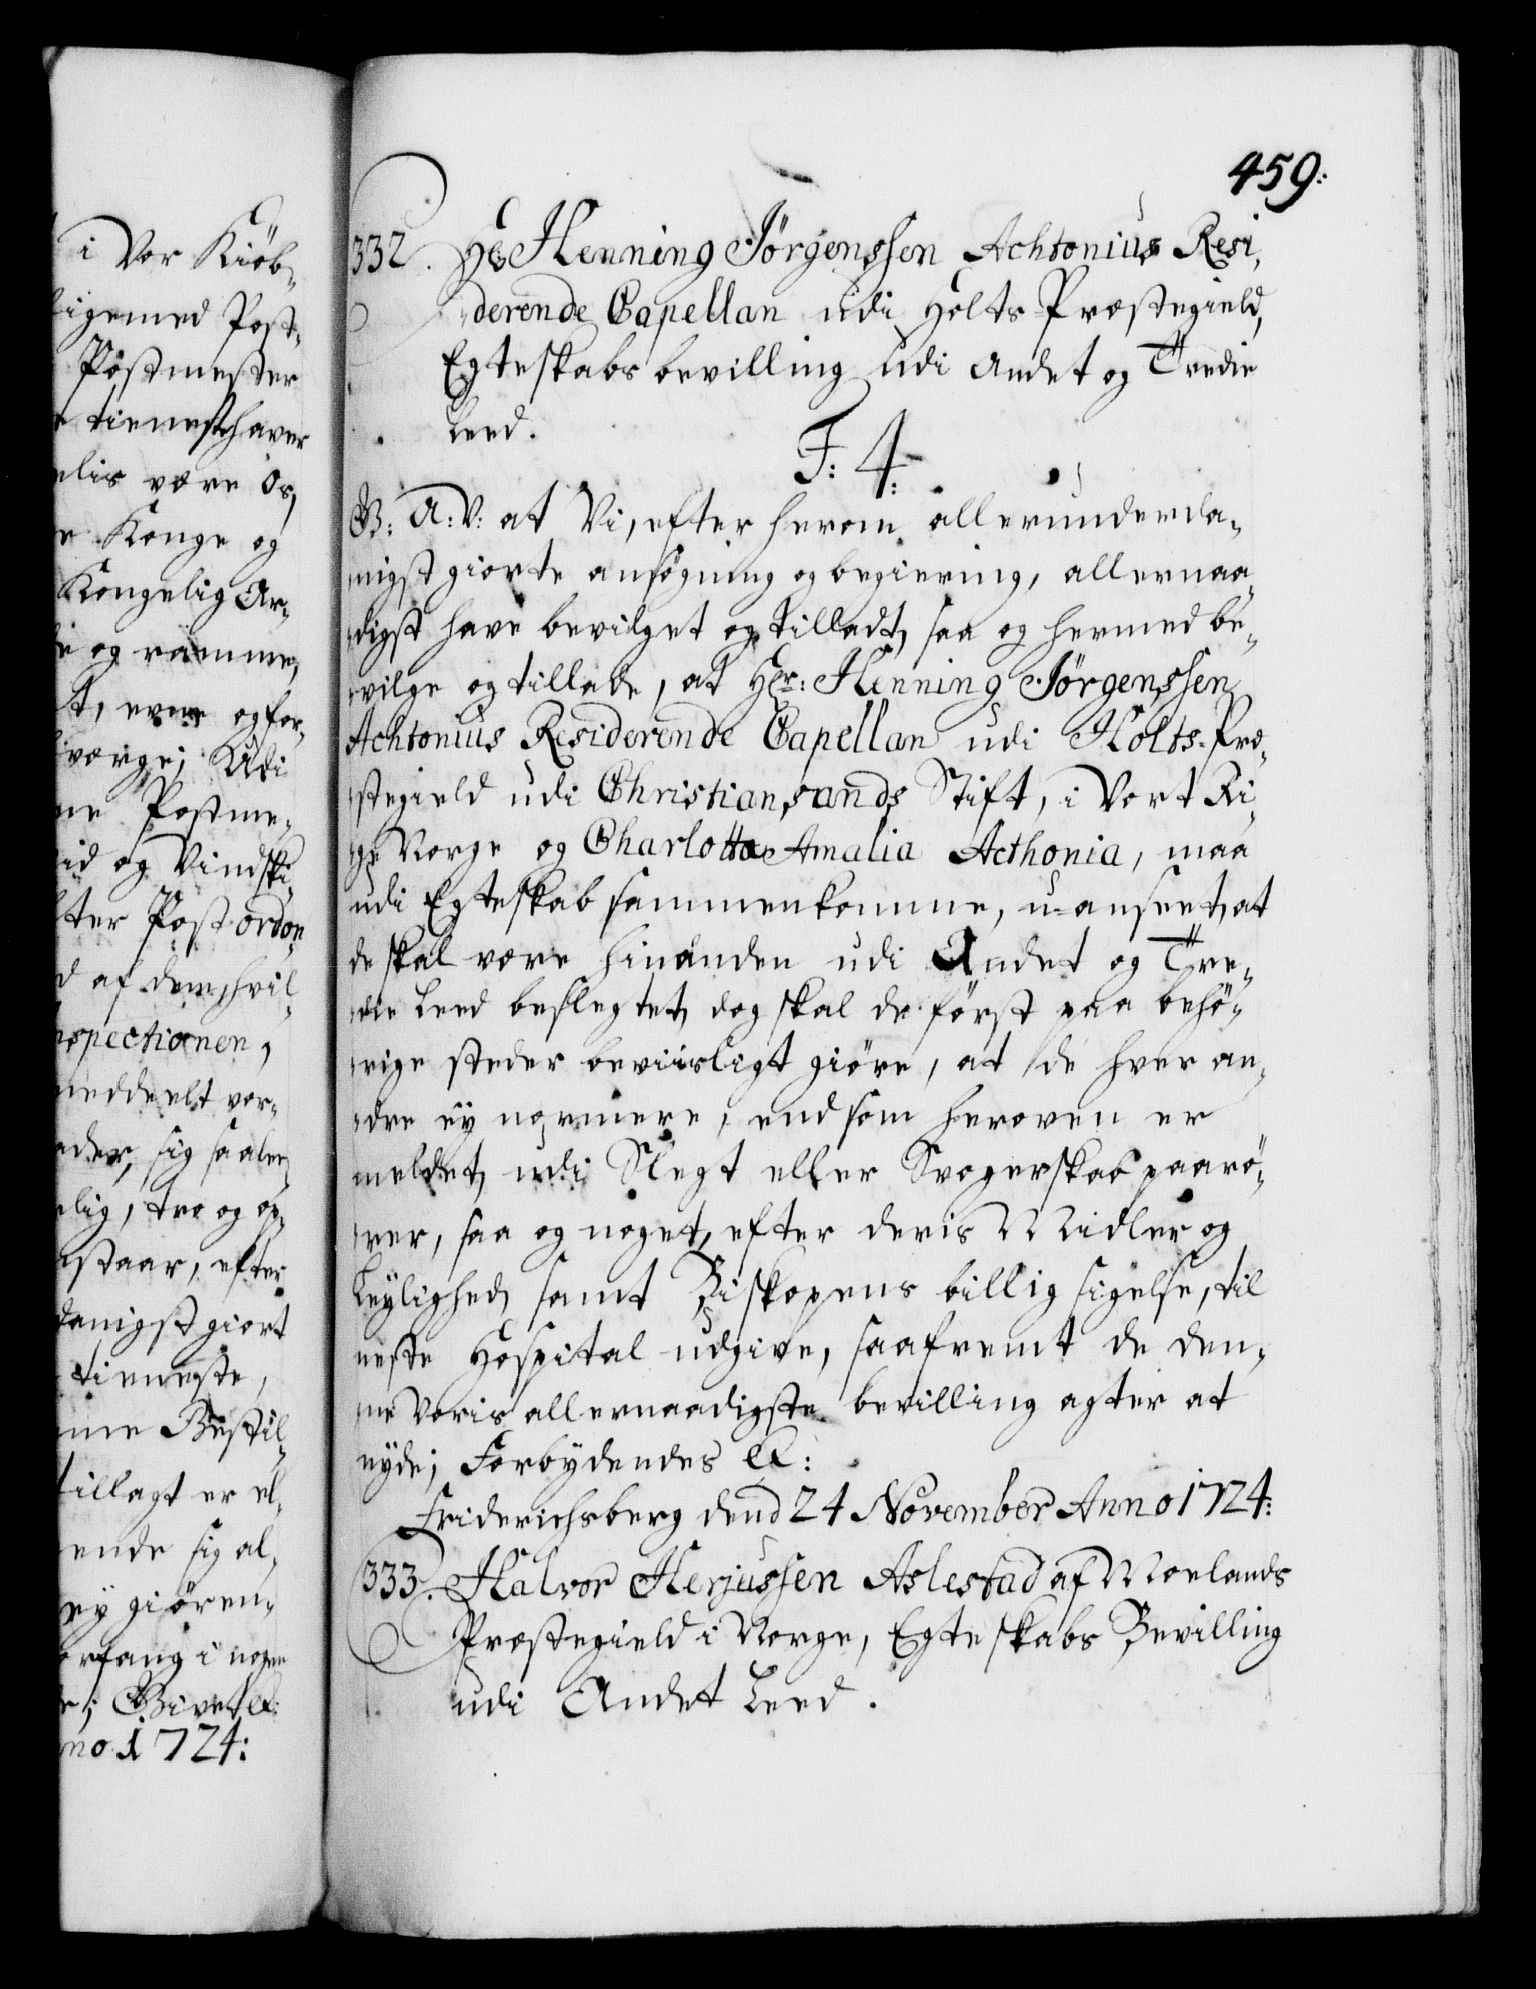 i Vor Kiöb-
ligemed Post-
Postmester
tienest haver
elis være Os,
e Konge og
Kongelig Ar-
e og ramme,
t, evne og for-
værge; Udi
ne Postme-
id og Vindski-
lter Post ordon-
d af dem, hvil-
nspectionen,
meddeelt vor-
ader, sig saale-
elig, tro og op-
staar, efter
danigst giort
tieneste,
nne Bestil-
tillagt er el-
ende sig al-
ey giören-
orfang i nogen
e; Givet &c:
no 1724:
459:
332. Hr Henning Jörgenssen Achtonius Resi-
derende Capellan udi Holts Præstegield,
Egteskabs bevilling udi Andet og Tredie
Leed.
F: 4:
G: A: V: at Vi, efter herom allerunderda-
nigst giorte ansögning og begiering, allernaa-
digst have bevilget og tilladt, saa og hermed be-
vilge og tillade, at Hr: Henning Jörgenssen
Achtonius Residerende Capellan udi Holts Præ-
stegield udi Christiansands Stift, i Vort Ri-
ge Norge og Charlotta Amalia Acthonia, maa
udi Egteskab sammenkomme, u-anseet, at
de skal være hinanden udi Andet og Tre-
die Leed beslegtet, dog skal de först paa behö-
rige steder beviisligt giöre, at de hver an-
dre ey nærmere, end som heroven er
meldet, udi Slegt eller Svogerskab paarö-
rer, saa og noget, efter deris Midler og
Leylighed, samt Biskopens billig sigelse, til
neste Hospital udgive, saafremt de den-
ne Voris allernaadigste bevilling agter at
nyde; Forbydendes &c:
Friderichsberg dend 24 November Anno 1724:
333. Halvor Herjussen Aslestad af Moelands
Præstegield i Norge, Egteskabs Bevilling
udi Andet Leed.